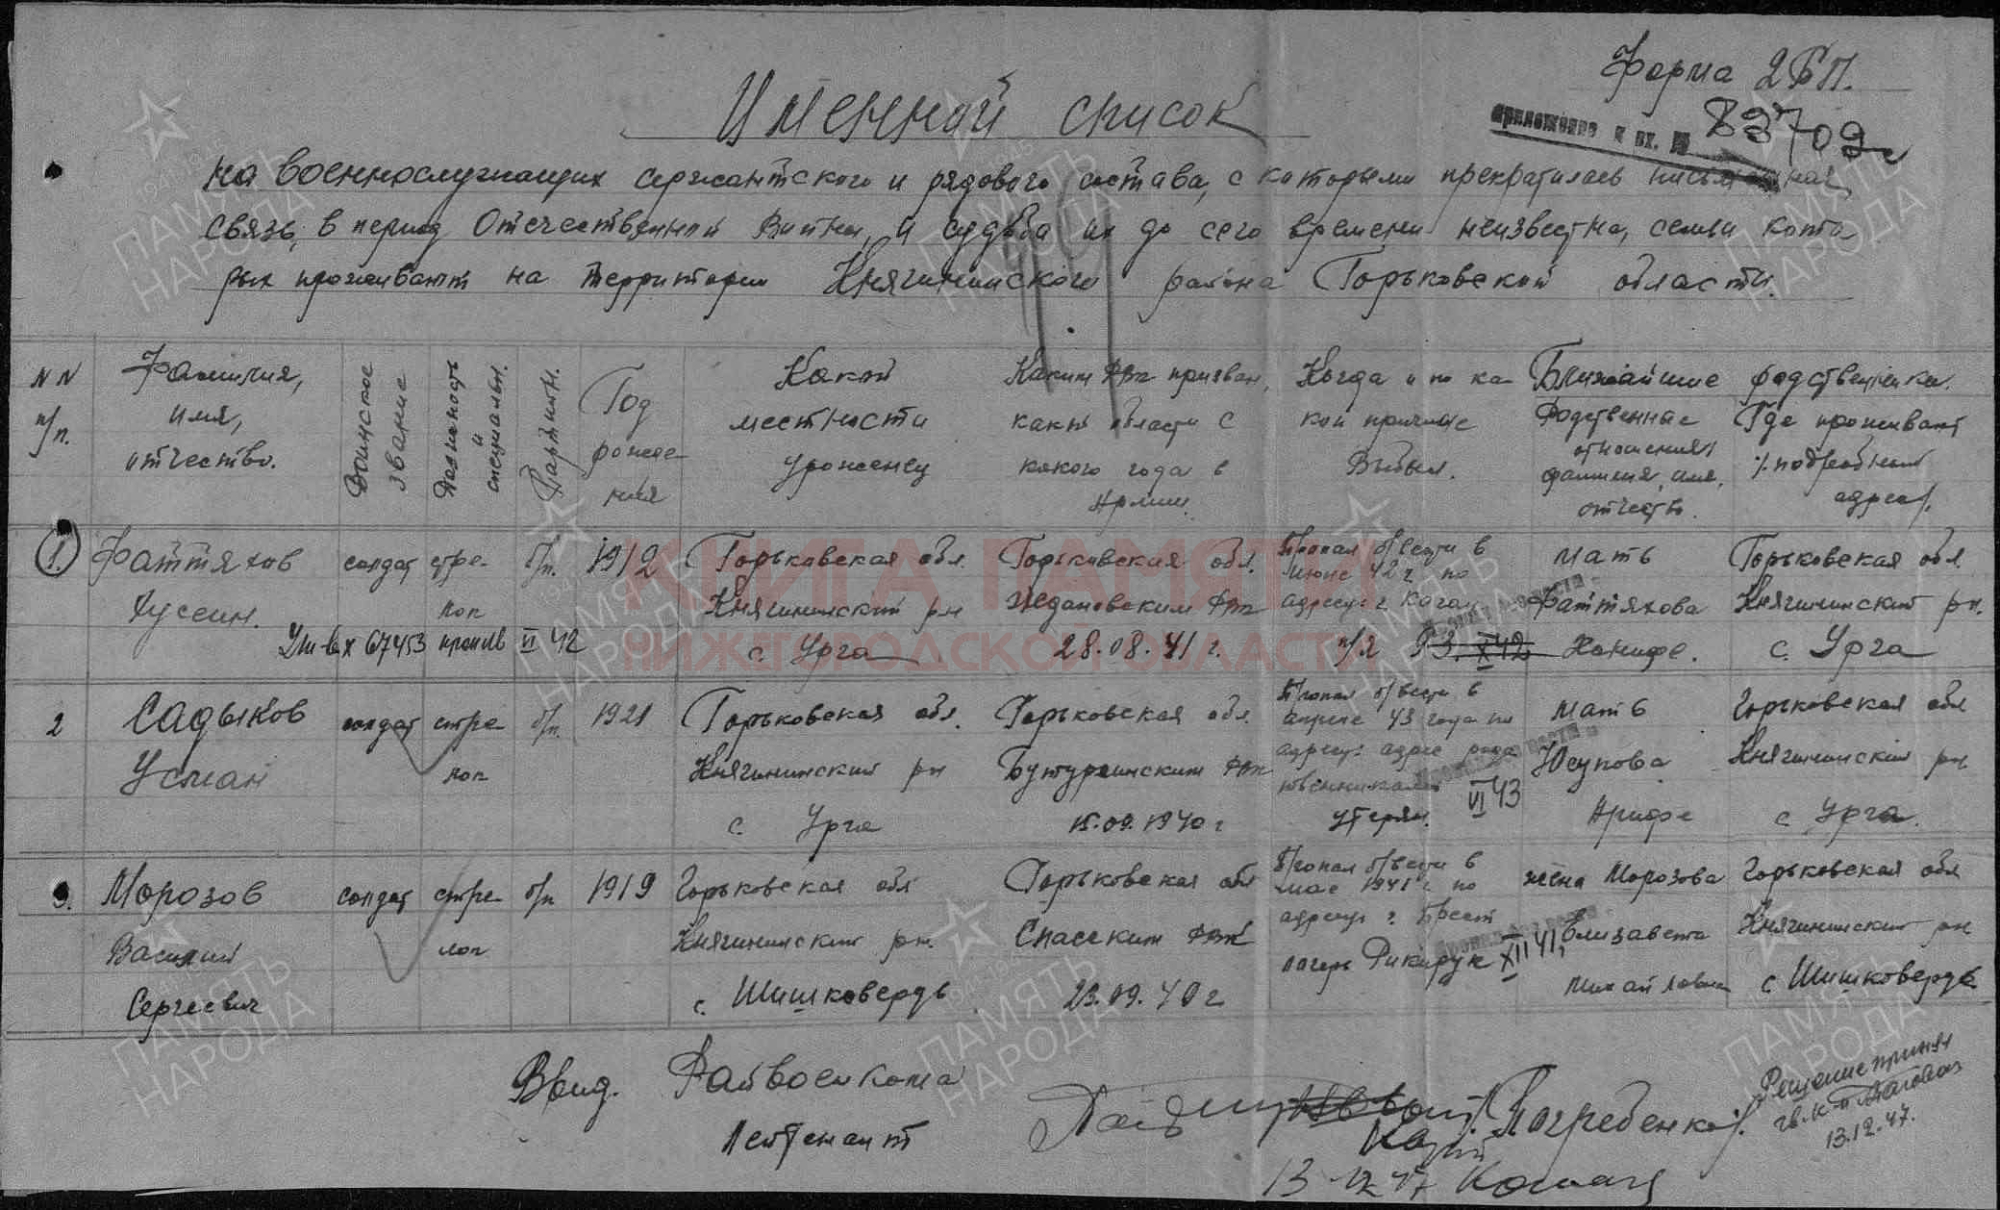 Форма 2БП.
приложение к вх. № 83709с
Именной список
на военнослужащих сержантского и рядового состава, с которыми прекратилась письменная
связь, в период Отечественной Войны, и судьба их до сего времени неизвестна, семьи кото-
рых проживают на территории Княгининского района Горьковской области.
NN п/п.
Фамилия, имя, отчество.
Воинское звание
Должность и специальн.
Партийн.
Год рожде-ния
Какой местности уроженец
Каким РВК призван, какой области с какого года в Армии.
Когда и по ка-кой причине Выбыл.
Ближайшие родственники.
Родственные отношения фамилия, имя, отчество.
Где проживают /подробный адрес/.
1. Фаттяхов солдат стре- б/п. 1912 Горьковская обл. Горьковская обл. Пропал б/вести в июне 42 г по мать Горьковская обл
Хусеин. лок Княгининский рн Ждановским РВК адресу: г Фаттяхова Княгининский рн.
67453 VI 42 с. Урга 28.08.41 г. п/я 93. X 42 Ханифе. с. Урга
2 Садыков солдат стре- б/п. 1921 Горьковская обл. Горьковская обл Пропал б/вести в апреле 43 года по мать Горьковская обл
Усман лок Княгининский рн Бутурлинским РВК адресу: адрес родственниками VI 43 Юсупова Княгининский рн
с. Урга 15.09.1940 г утерян. Арифе с Урга.
3. Морозов солдат стре- б/п 1919 Горьковская обл Горьковская обл Пропал б/вести в мае 1941 г по жена Морозова Горьковская обл
Василий лок Княгининский рн. Спасским РВК адресу г Брест Елизавета Княгининский рн
Сергеевич с. Шишковердь 23.09.40 г лагерь XII 41 Михайловна с Шишковердь
Врид. Райвоенкома
Лейтенант /Погребенков/.
13-12-47
Решение принял
13.12.47.
ПАМЯТЬ НАРОДА
КНИГА ПАМЯТИ
НИЖЕГОРОДСКОЙ ОБЛАСТИ